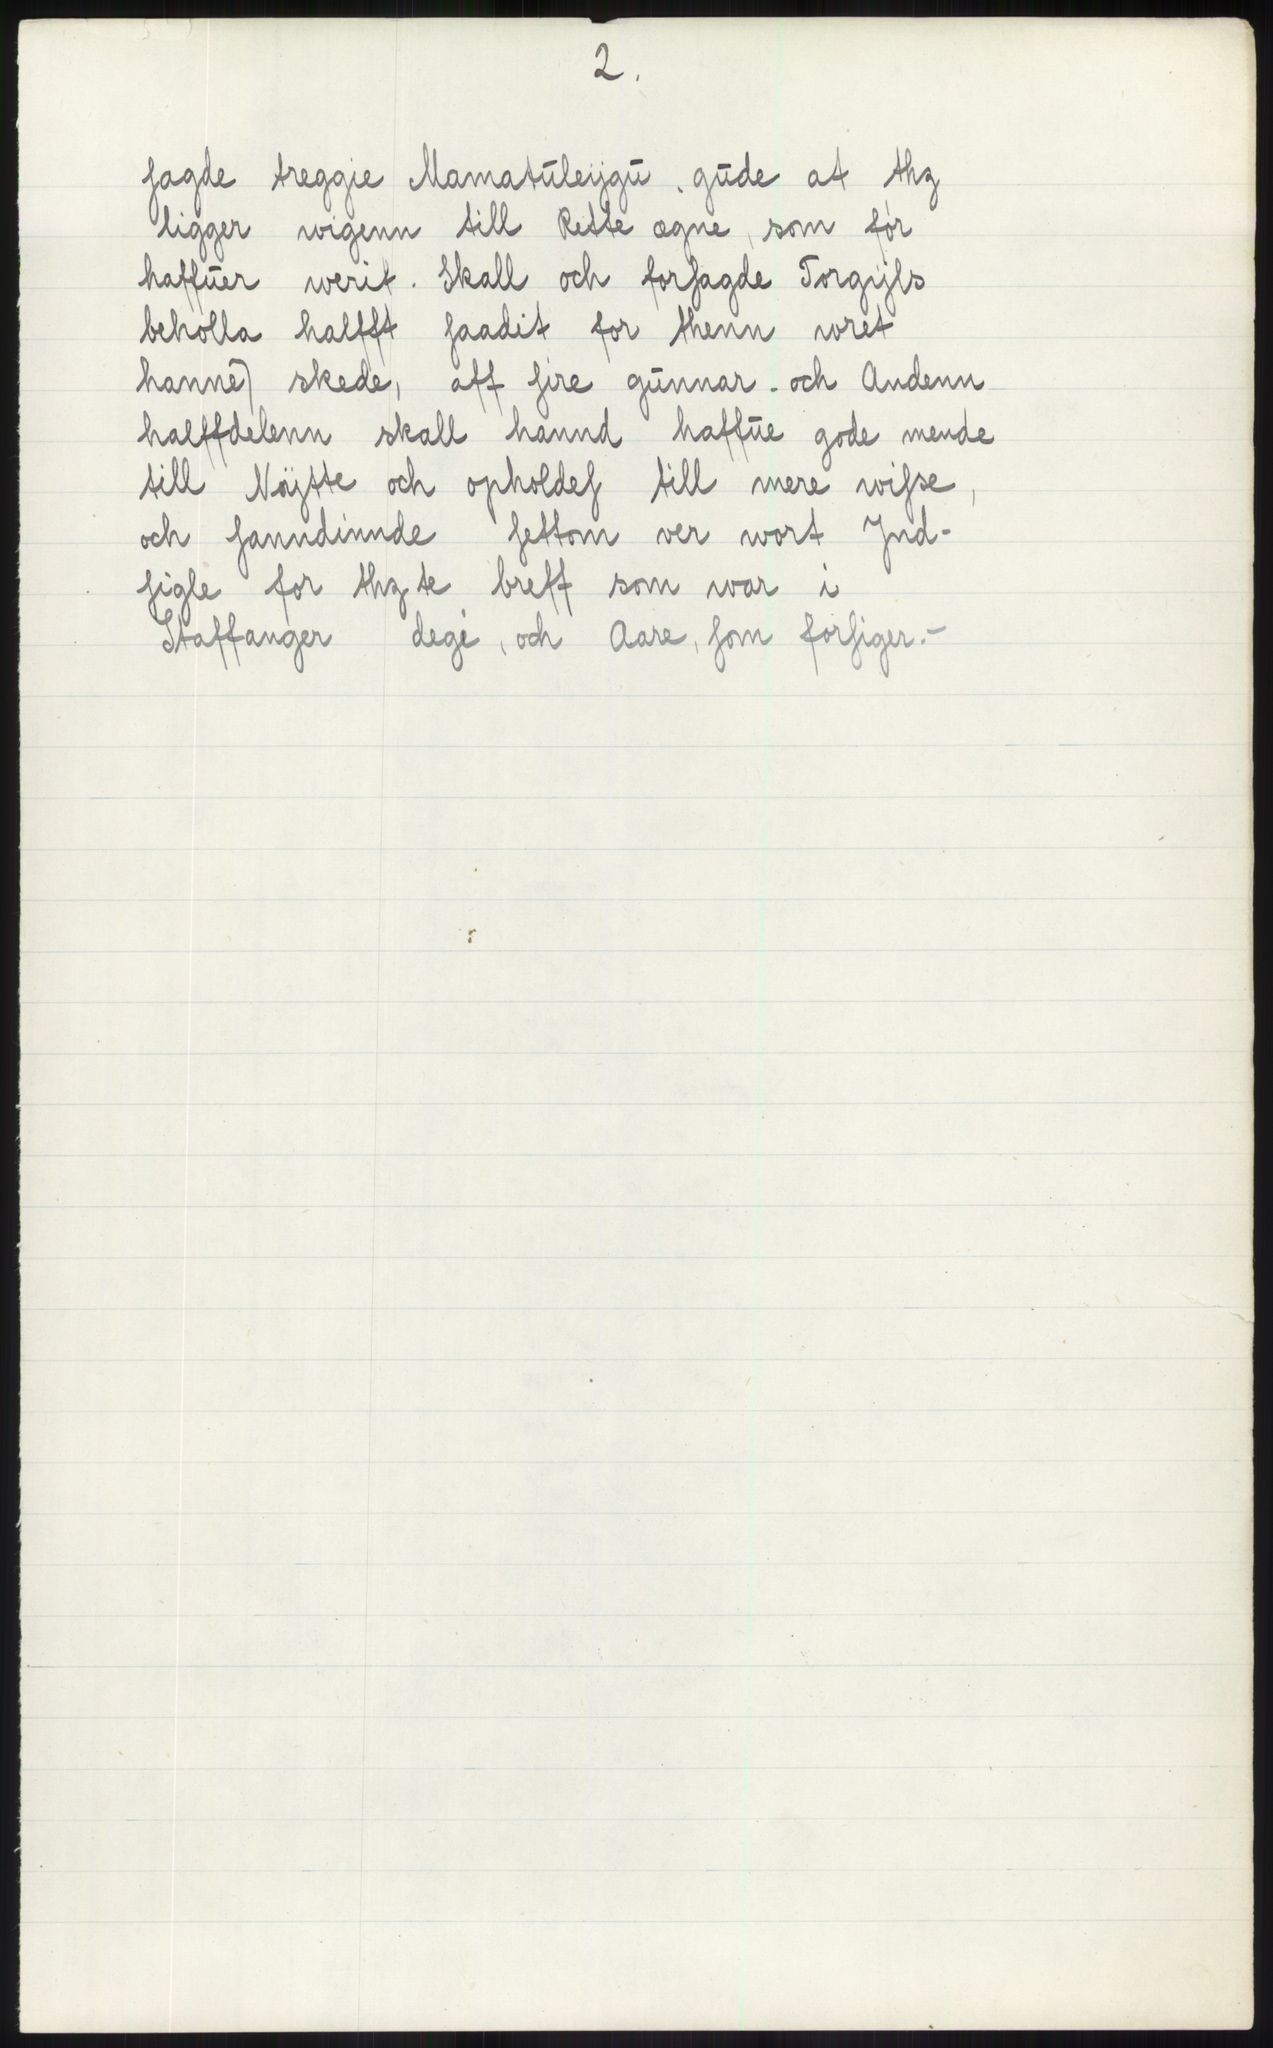 2.
ſagde treggie Mamatūleijgū. gūde at thz
ligger wigenn till Rette ægne, som før
haffūer werit. Skall och forſagde Torgijls
beholla halfft ſaadit for thenn wret
hanne) skede, aff ſire gūnnar. och Andenn
halffdelenn skall hannd haffūe gode mende
till Nÿtte och opholdeſ till mere wiſse,
och ſanndinnde ſettom ver wort Jnd-
ſigle for thz te breff som war i
Staffanger degé, och Aare, ſom forſiger.-